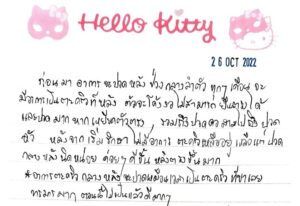 Hello Kitty
26 OCT 2022
ก่อนมา อาการ จะปวดหลัง ช่วงกลางลำตัว ทุกๆ เดือน จะ
มีอาการเป็นตะคริวที่หลัง ตัวจะโก่งงอไม่สามารถยืนตรงได้
และปวดมาก หากเหยียดตัวตรง รวมถึงปวด ลามไปถึง ปวด
หัว หลังจาก เริ่มรักษา ไม่มีอาการ ตะคริวเหลืออยู่ เหลือแต่ ปวด
กลางหลังนิดหน่อย ค่อยๆ ดีขึ้น หลังตรงขึ้นมาก
* อาการตะคริว กลางหลัง จะปวดเหมือนเวลาเป็นตะคริว ที่ขาเลย
ทรมานมากๆ ตอนนี้ไม่เป็นแล้วดีมากๆ